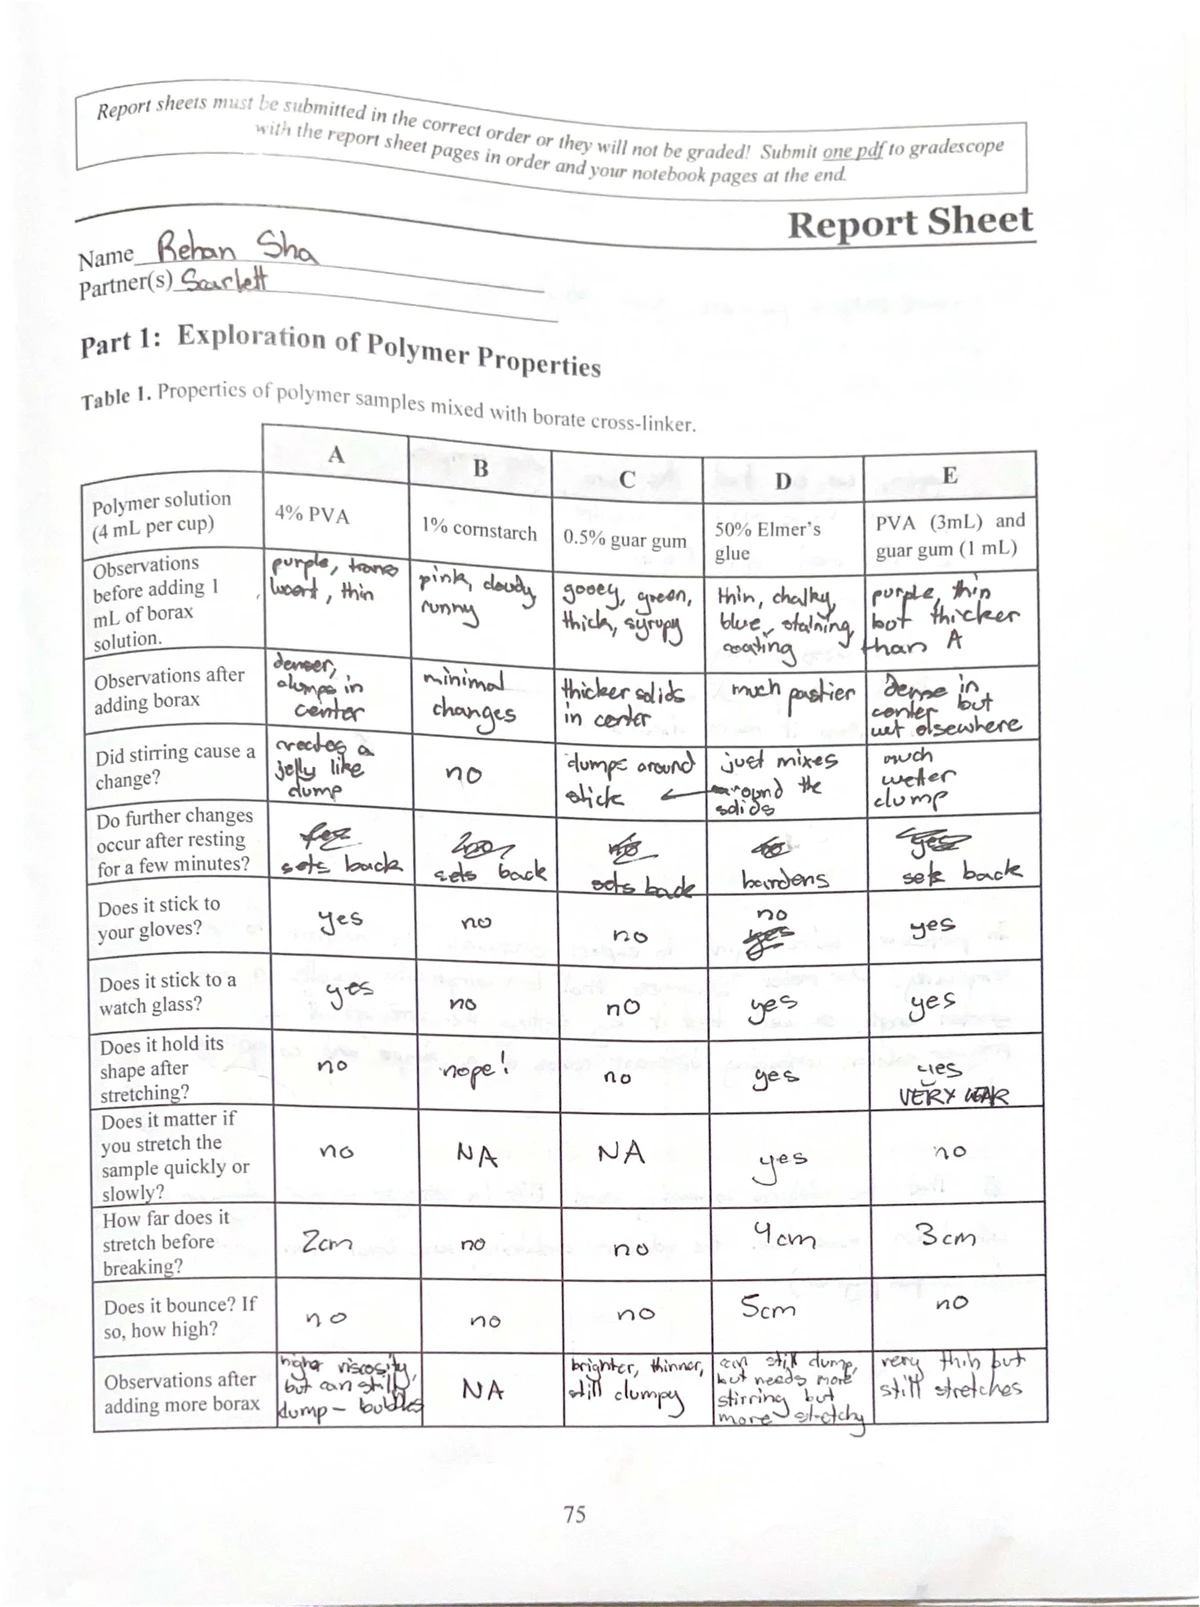 Report sheets must be submitted in the correct order or they will not be graded! Submit one pdf to gradescope
with the report sheet pages in order and your notebook pages at the end.
Report Sheet
Name Rehan Sha
Partner(s) Scarlett
Part 1: Exploration of Polymer Properties
Table 1. Properties of polymer samples mixed with borate cross-linker.
A
B
C
D
E
Polymer solution
(4 mL per cup)
4% PVA
1% cornstarch
0.5% guar gum
50% Elmer's
glue
PVA (3mL) and
guar gum (1 mL)
Observations
before adding 1
mL of borax
solution.
purple, trans
lucent, thin
pink, cloudy,
runny
gooey, green,
thick, syrupy
thin, chalky,
blue, staining,
coating
purple, thin
but thicker
than A
Observations after
adding borax
denser,
clumps in
center
minimal
changes
thicker solids
in center
much pastier
dense in
center but
wet elsewhere
Did stirring cause a
change?
creates a
jelly like
clump
no
clumps around
stick
just mixes
around the
solids
much
wetter
clump
Do further changes
occur after resting
for a few minutes?
sets back
sets back
sets back
hardens
sets back
Does it stick to
your gloves?
yes
no
no
no
yes
yes
Does it stick to a
watch glass?
yes
no
no
yes
yes
Does it hold its
shape after
stretching?
no
nope!
no
yes
yes
VERY WEAK
Does it matter if
you stretch the
sample quickly or
slowly?
no
NA
NA
yes
no
How far does it
stretch before
breaking?
2cm
no
no
4cm
3cm
Does it bounce? If
so, how high?
no
no
no
5cm
no
Observations after
adding more borax
higher viscosity,
but can still
clump - bubbles
NA
brighter, thinner,
still clumpy
can still clump,
but needs more
stirring but
more stretchy
very thin but
still stretches
75